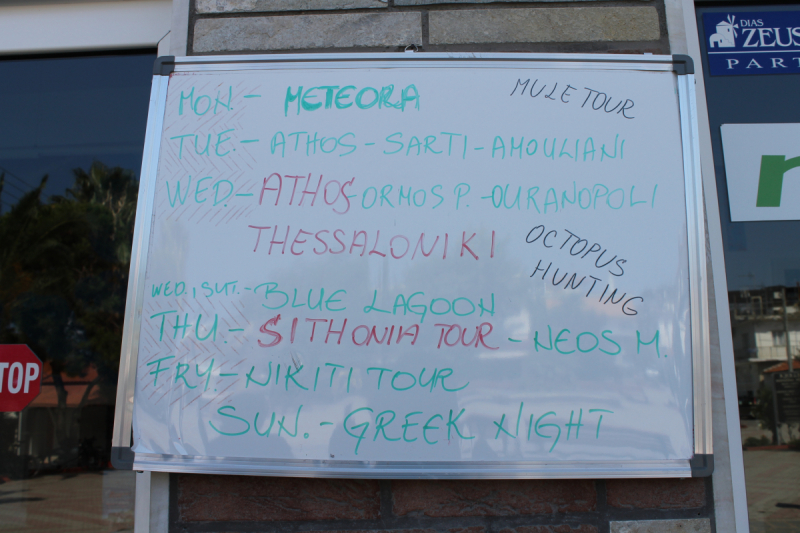 MON. - METEORA
MULE TOUR
TUE. - ATHOS - SARTI - AMOULIANI
WED. - ATHOS - ORMOS P. - OURANOPOLI
THESSALONIKI
OCTOPUS
HUNTING
WED., SUT. - BLUE LAGOON
THU. - SITHONIA TOUR - NEOS M.
FRY. - NIKITI TOUR
SUN. - GREEK NIGHT
DIAS
ZEUS
PART
TOP